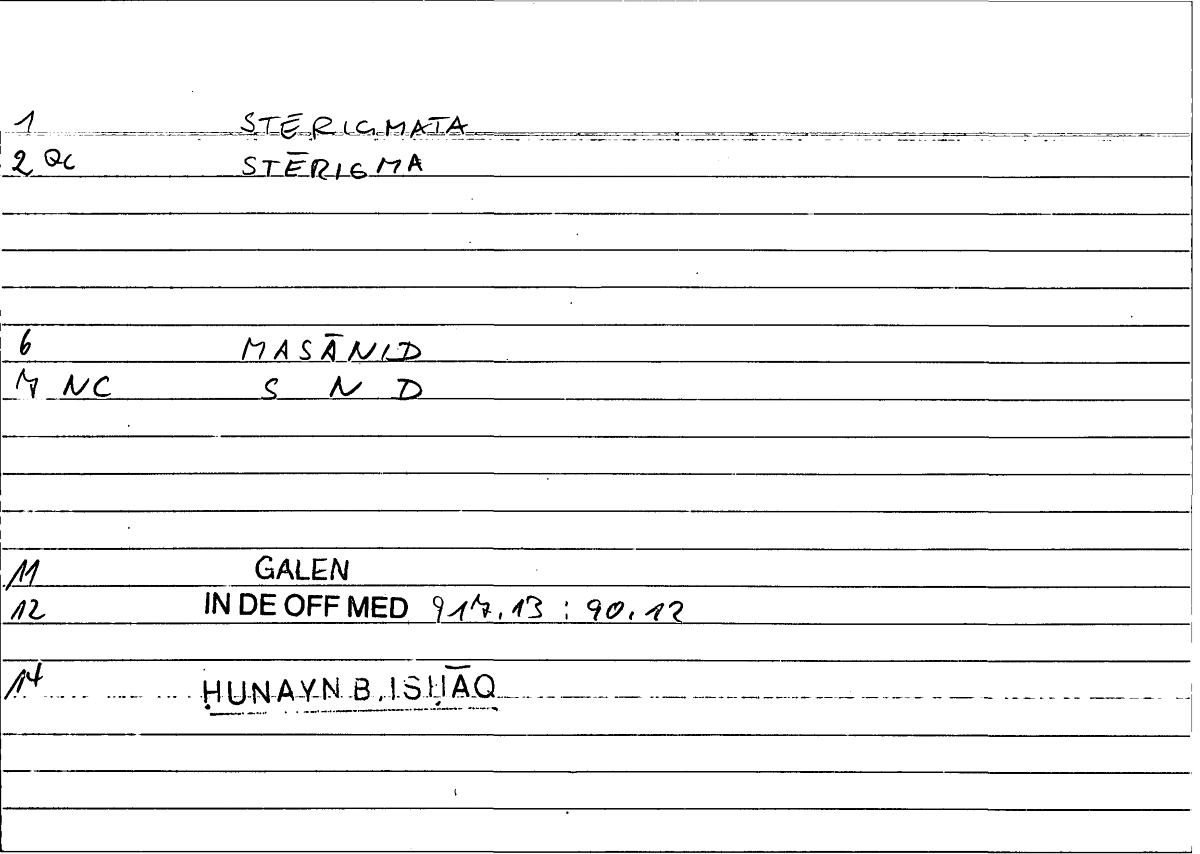 1 STĒRIGMATA
2 QC STĒRIGMA
6 MASĀNID
7 NC S N D
11 GALEN
12 IN DE OFF MED 917.13 : 90.12
14 ḤUNAYN B. ISḤĀQ